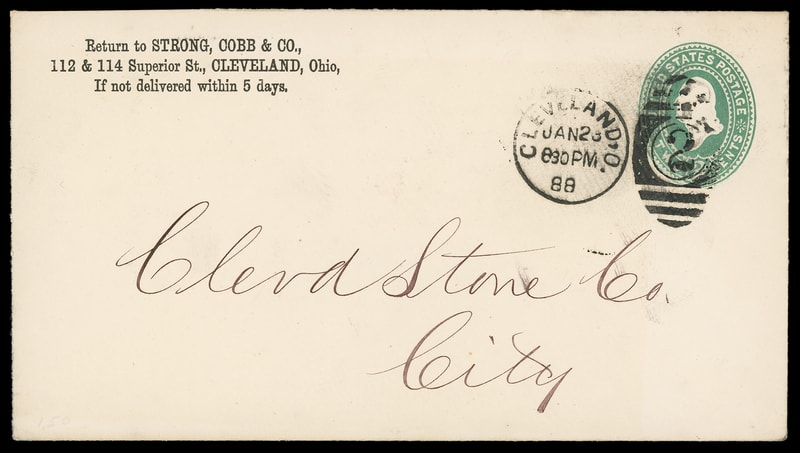 Return to STRONG, COBB & CO.,
112 & 114 Superior St., CLEVELAND, Ohio,
If not delivered within 5 days.
CLEVELAND, O.
JAN 23
630 PM
88
STATES POSTAGE
Clevd Stone Co.
City